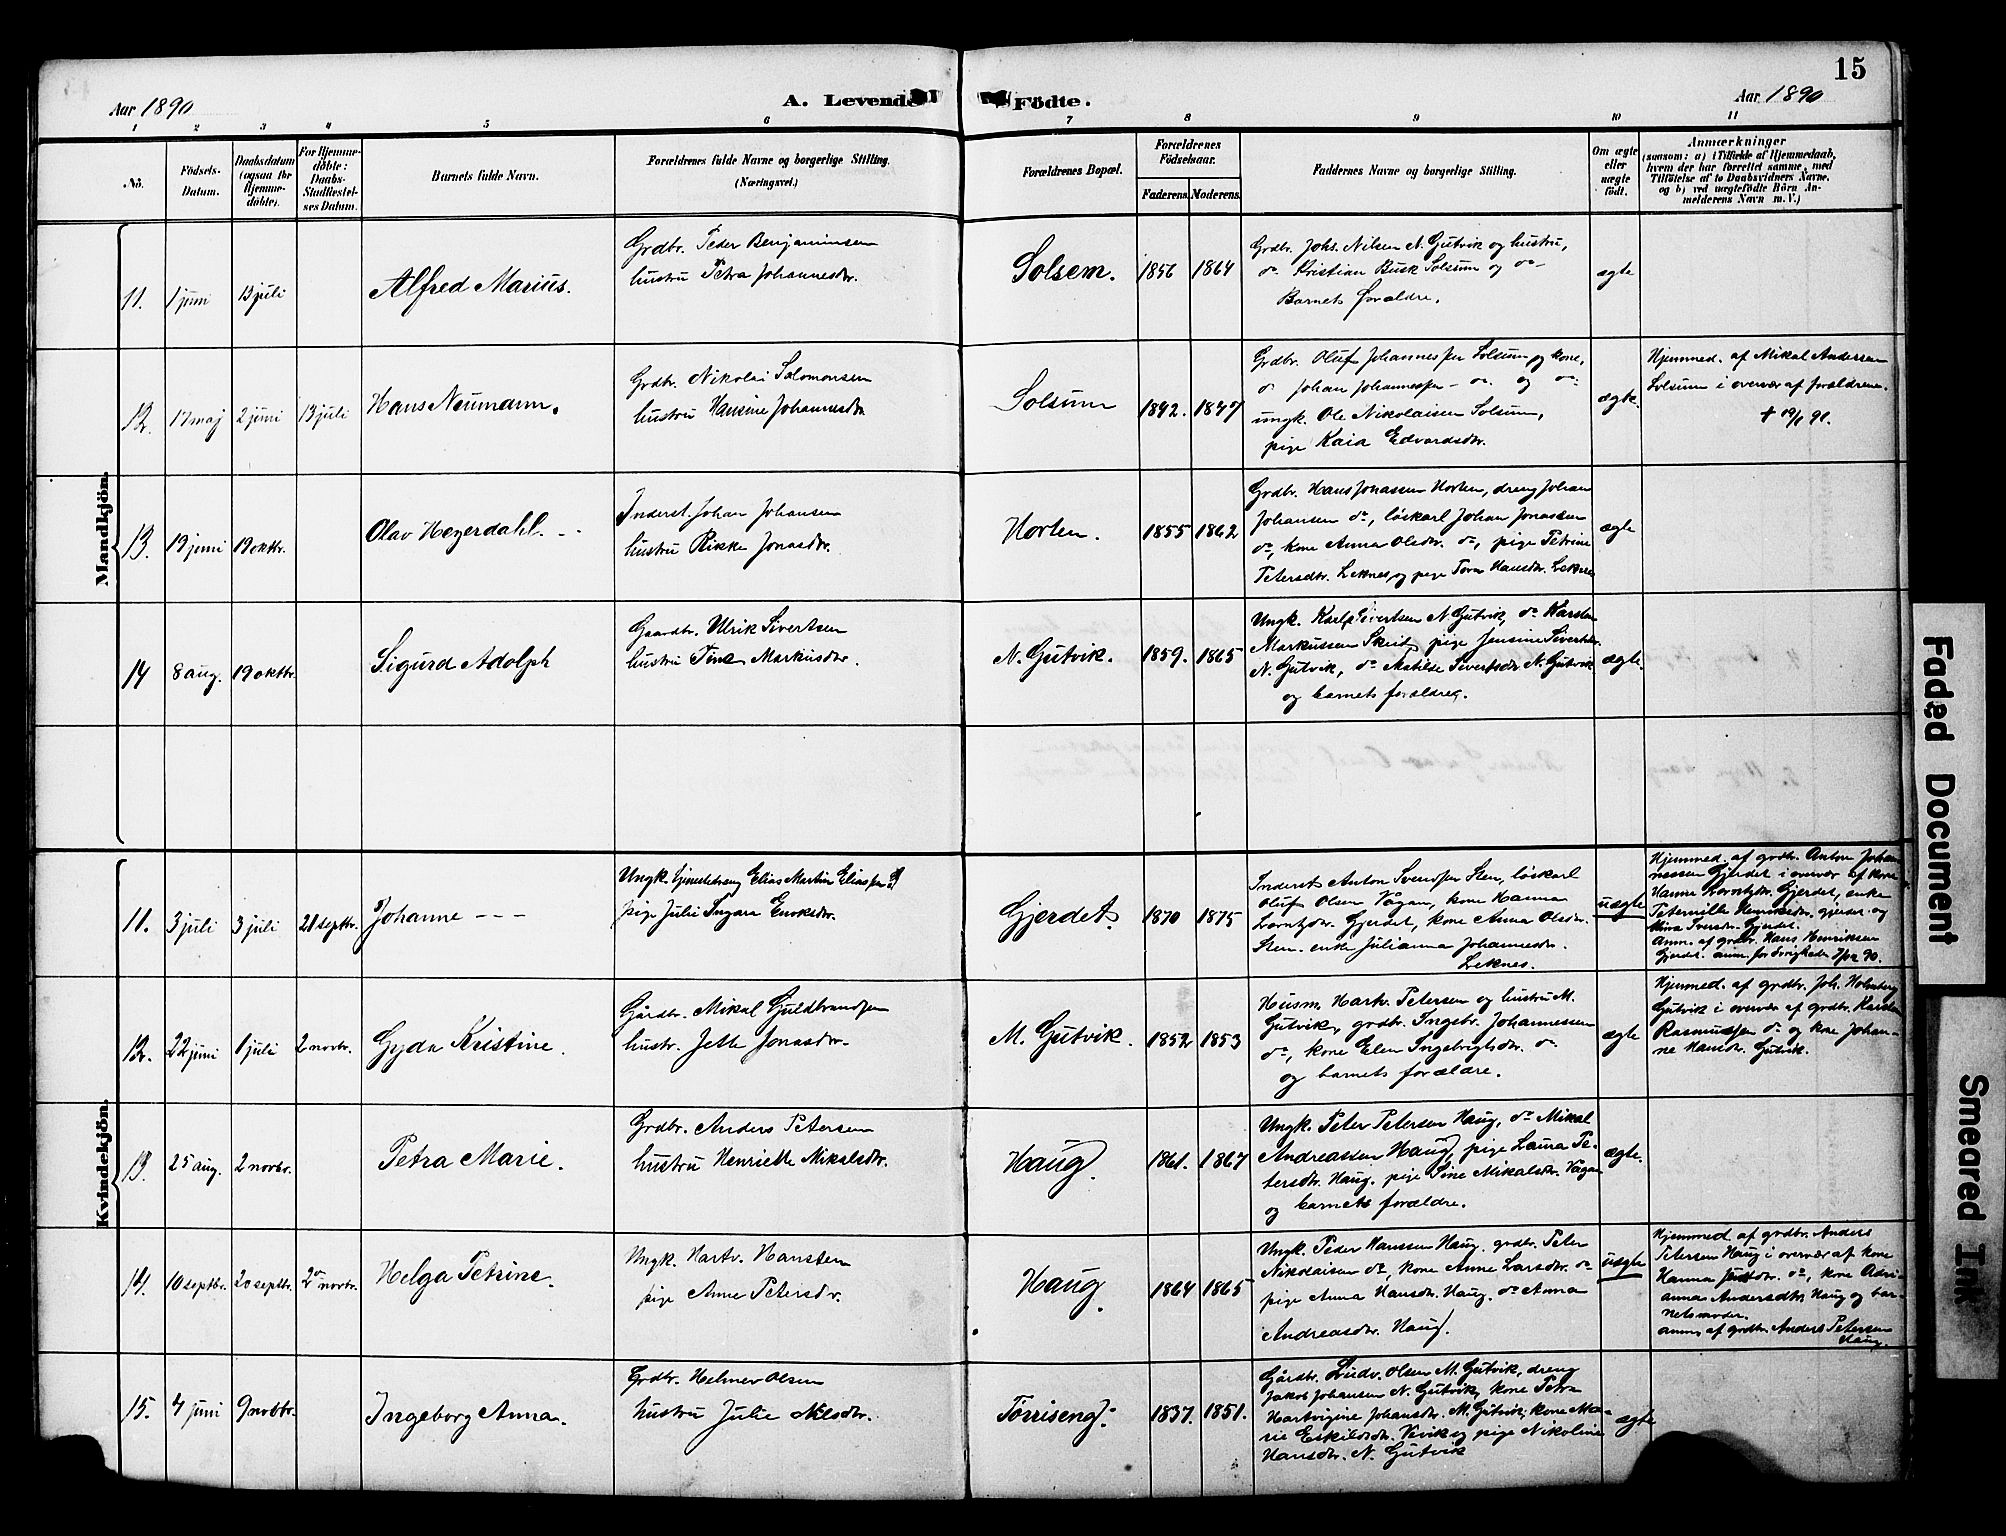 15
Aar 1890
A. Levende Födte.
Aar 1890
1 2 3 4 5 6 7 8 9 10 11
No.
Födsels-Datum.
Daabsdatum (ogsaa for Hjemmedöbte).
For Hjemmedöbte: Daabs-Stadfæstelses Datum.
Barnets fulde Navn.
Forældrenes fulde Navne og borgerlige Stilling. (Næringsvei.)
Forældrenes Bopæl.
Forældrenes Födselsaar.
Faderens. Moderens.
Faddernes Navne og borgerlige Stilling.
Om ægte eller uægte födt.
Anmærkninger
(saasom: a) i Tilfælde af Hjemmedaab, hvem der har forrettet samme, med Tilföielse af to Daabsvidners Navne, og b) ved uægtefödte Börn Anmelderens Navn m. V.)
Mandkjön.
11. 1 juni 13 juli
Alfred Marius.
Grdbr. Peder Benjaminsen
hustru Petra Johannesdr.
Solsem. 1856 1864
Grdbr. Johs. Nilsen N. Gutvik og hustru,
do Kristian Busk Solsum og do
Barnets forældre.
ægte
12. 17 maj 2 juni 13 juli
Hans Neumann.
Grdbr. Nikolai Salomonsen
hustru Hansine Johannesdr.
Solsum 1842. 1847
Grdbr. Oluf Johannessen Solsum og kone,
do Johan Johannessen do og do
ungk. Ole Nikolaisen Solsum,
pige Kaia Edvardsdr.
ægte.
Hjemmed. af Mikal Andersen
Solsum i overvær af forældrene.
13. 19 juni 19 oktbr.
Olav Heyerdahl.
Inderst. Johan Johansen
hustru Rikke Jonasdr.
Horten. 1855 1862
Grdbr. Hans Jonassen Horten, dreng Johan
Johansen do, løskarl Johan Jonassen
do, kone Anna Olsdr. do, pige Petrine
Petersdtr. Leknes, og pige Hansdr. Leknes
ægte
14 8 aug. 19 oktbr.
Sigurd Adolph
Gaardbr. Ulrik Sivertsen
hustru Tine Markusdr.
N. Gutvik. 1859. 1865
Ungk. Karl Sivertsen N. Gutvik, do Karsten
Markussen Skeid, pige Jensine Sivertsdr.
N. Gutvik, do Matilde Sivertsdr N. Gutvik
og barnets forældre.
ægte.
Kvindekjön.
11. 3 juli 3 juli 21 septbr.
Johanne - - -
Ungk. tjenestedreng Elias Martin Eliassen &
pige Julie Ingara Enoksdr.
Gjerdet 1870 1875
Inderst Anton Svendsen Sten, løskarl
Oluf Olsen Vågan, kone Hanna
Lorntsdr. Gjerdet, kone Anna Olsdr.
Sten. enke Julianna Johannesdr.
Leknes.
uægte
Hjemmed. af grdbr. Anton Johan-
nessen Gjerdet i overvær af kone
Hanna Lorntsdr. Gjerdet, enke
Gjerdet og
Gjerdet.
Anm. af grdbr. Hans Henriksen
12. 22 juni 1 juli 2 novbr.
Gyda Kristine.
Gårdbr. Mikal Guldbrandsen
hustr. Jette Jonasdr.
M. Gutvik. 1852 1853
Husm. Hartv. Petersen og hustru M.
Gutvik, grdbr. Ingebr. Johannessen
do, kone Elen Ingebrigtsdr. do
og barnets forældre.
ægte
Hjemmed. af grdbr. Joh. Holmberg
Gutvik i overvær af grdbr. Karsten
Rasmussen do og kone Johan-
ne Hansdr. Gutvik.
13. 25 aug. 2 novbr.
Petra Marie.
Grdbr. Anders Petersen
hustru Henriette Mikalsdr.
Haug. 1861. 1867
Ungk. Peter Petersen Haug, do Mikal
Andreassen Haug, pige Laura Pe-
tersdr. Haug. pige Sine Mikalsdr. Vågan
og barnets forældre.
ægte.
14. 10 septbr. 20 septbr. 2 novbr.
Helga Petrine.
Ungk. Hartv. Hansten
pige Anne Petersdr.
Haug. 1864 1865
Ungk. Peder Hanssen Haug. grdbr. Peter
Nikolaisen do, kone Anne Larsdr. do
pige Anna Hansdr. Haug. do Anna
Andreasdtr. Haug.
uægte
Hjemmed. af grdbr. Anders
Petersen Haug i overvær af kone
Hanna do, kone Adri-
anna Andersdtr. Haug og bar-
netsmoder.
anm. af grdbr. Anders Petersen
Haug.
15. 4 juni 9 novbr.
Ingeborg Anna.
Grdbr. Helmer Olsen
hustru Julie Nilsdr.
Torriseng. 1837. 1851.
Gårdbr. Ludv. Olsen M. Gutvik, dreng
Jakob Johansen N. Gutvik, kone Petra
Hartvigine Johansdr. M. Gutvik, kone Ma-
rie Eskildsdr. og pige Nikoline
Hansdr. N. Gutvik
ægte
Faded Document
Smeared Ink